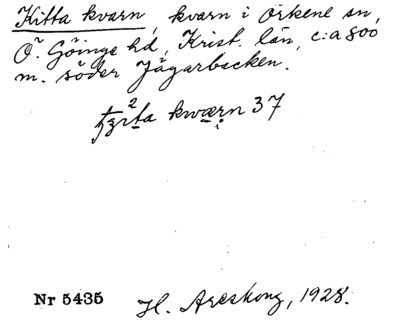 Kitta kvarn, kvarn i Örkene sn,
Ö. Göinge hd, Krist. län, c:a 800
m. söder Jägarbacken.
kwærn 37
Nr 5435
H. Areskong, 1928.